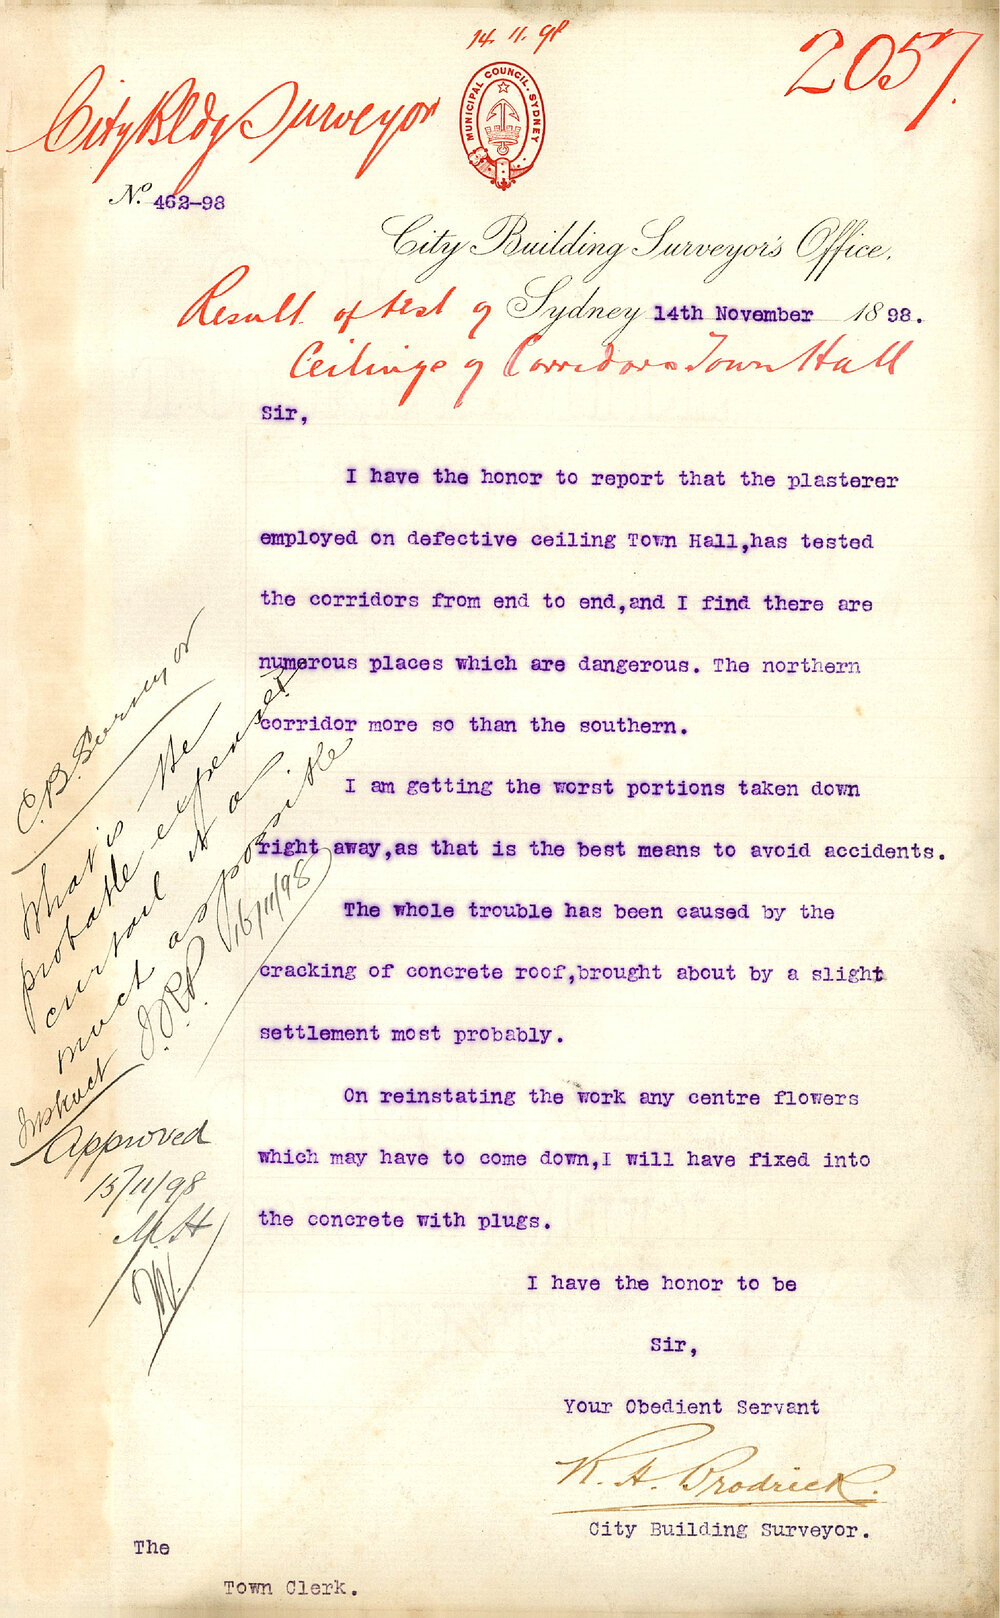 14. 11. 98
2057.
City Bldg Surveyor
MUNICIPAL COUNCIL. SYDNEY
No. 462-98
City Building Surveyor's Office,
Sydney 14th November 1898.
Result of test of
Ceilings of Corridors Town Hall
Sir,
I have the honor to report that the plasterer
employed on defective ceiling Town Hall,has tested
the corridors from end to end,and I find there are
numerous places which are dangerous. The northern
corridor more so than the southern.
I am getting the worst portions taken down
right away,as that is the best means to avoid accidents.
The whole trouble has been caused by the
cracking of concrete roof,brought about by a slight
settlement most probably.
On reinstating the work any centre flowers
which may have to come down,I will have fixed into
the concrete with plugs.
I have the honor to be
Sir,
Your Obedient Servant
R. H. Brodrick.
City Building Surveyor.
The
Town Clerk.
C.B. Surveyor
What is the
probable expense?
curtail it as
much as possible
J.R.P. 16/11/98
Instruct
Approved
15/11/98
M.H